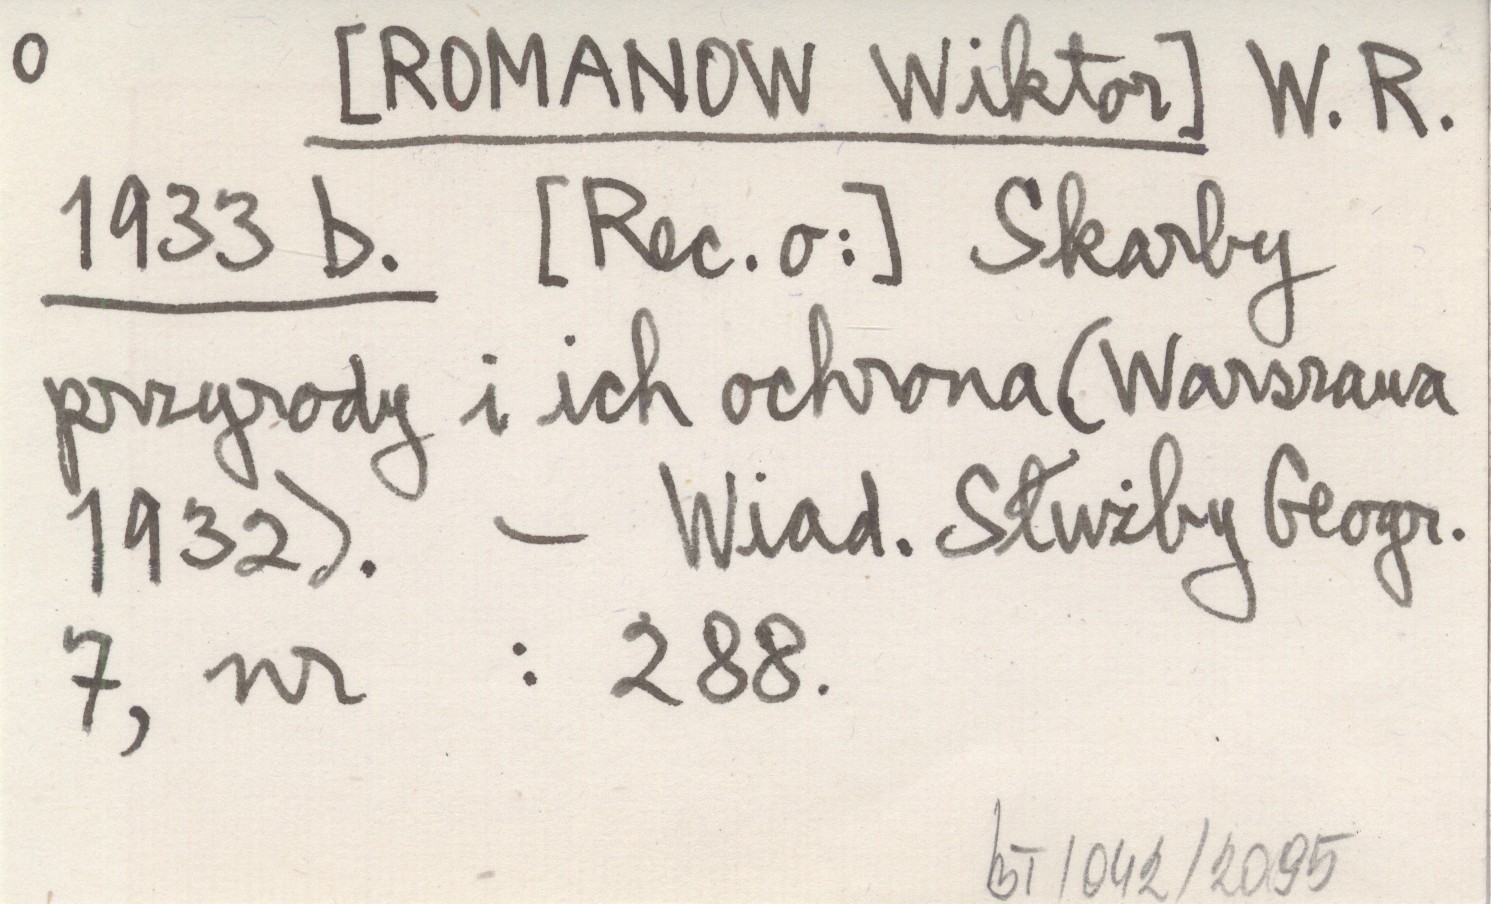 o [ROMANOW Wiktor] W. R.
1933 b. [Rec. o:] Skarby
przyrody i ich ochrona (Warszawa
1932). – Wiad. Służby Geogr.
7, nr : 288.
BT/042/2095